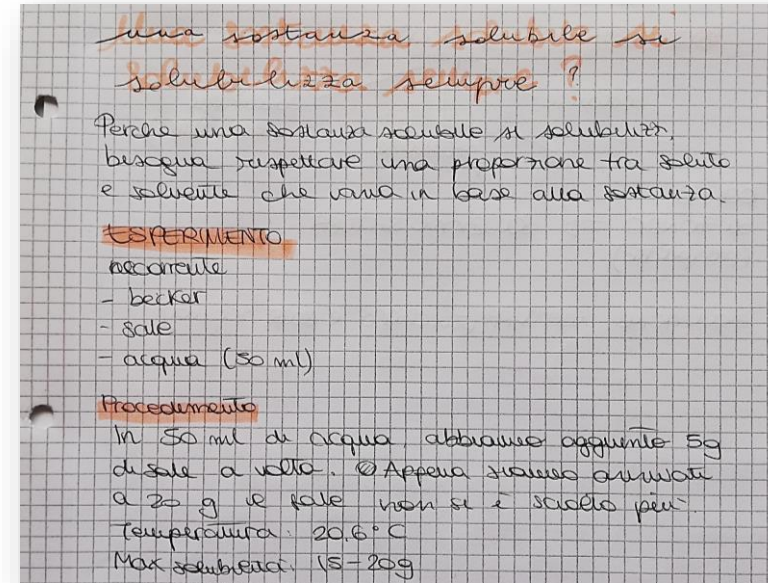 una sostanza solubile si
solubilizza sempre?
Perche una sostanza solubile si solubilizzi,
bisogna rispettare una proporzione tra soluto
e solvente che varia in base alla sostanza.
ESPERIMENTO
necorrente
- becker
- sale
- acqua (50 ml)
Procedimento
In 50 ml di acqua, abbiamo aggiunto 5g
di sale a volta. Appena siamo arrivati
a 20 g il sale non si è sciolto più.
Temperatura: 20.6°C
Max solubilità: 15-20g